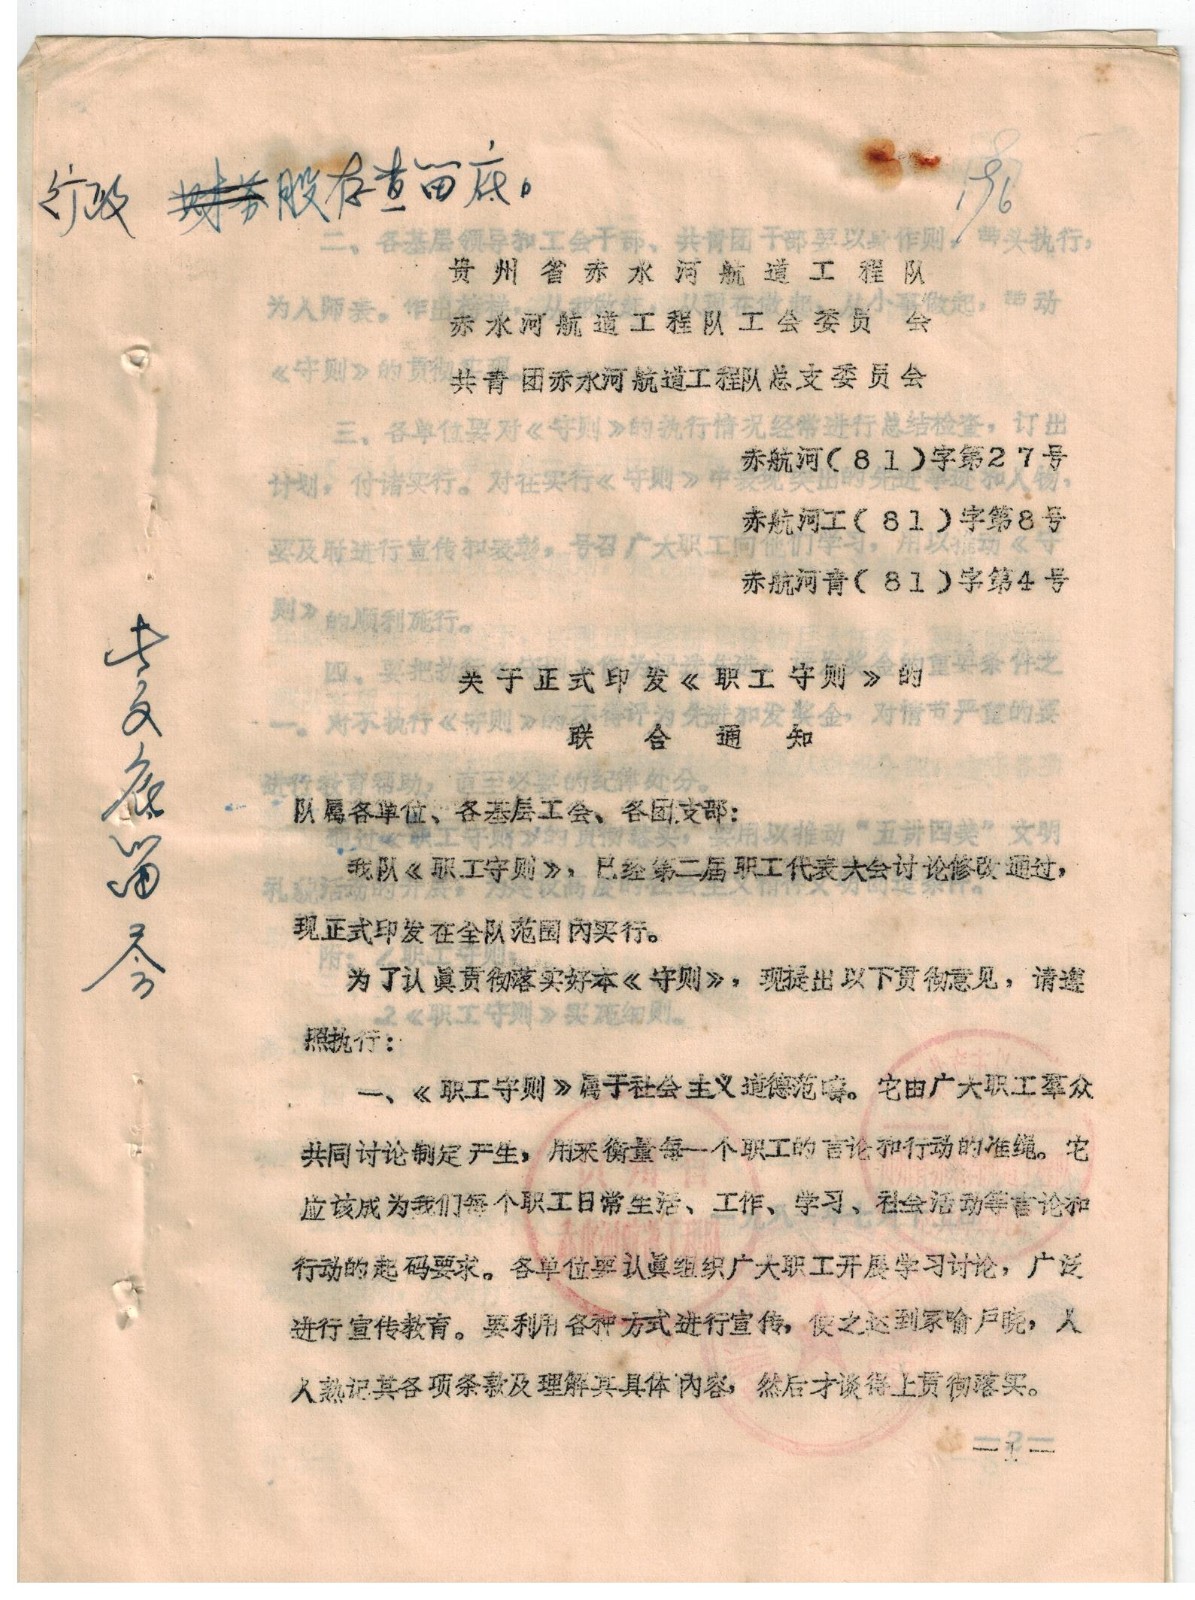 行政 财务股存查留底。
196
贵州省赤水河航道工程队
赤水河航道工程队工会委员会
共青团赤水河航道工程队总支委员会
赤航河(81)字第27号
赤航河工(81)字第8号
赤航河青(81)字第4号
关于正式印发《职工守则》的
联合通知
队属各单位、各基层工会、各团支部:
我队《职工守则》,已经第二届职工代表大会讨论修改通过,
现正式印发在全队范围内实行。
为了认眞贯彻落实好本《守则》,现提出以下贯彻意见,请遵
照执行:
一、《职工守则》属于社会主义道德范畴。它由广大职工羣众
共同讨论制定产生,用来衡量每一个职工的言论和行动的准绳。它
应该成为我们每个职工日常生活、工作、学习、社会活动等言论和
行动的起码要求。各单位要认眞组织广大职工开展学习讨论,广泛
进行宣传教育。要利用各种方式进行宣传,使之达到家喻户晓,人
人熟记其各项条款及理解其具体内容,然后才谈得上贯彻落实。
—1—